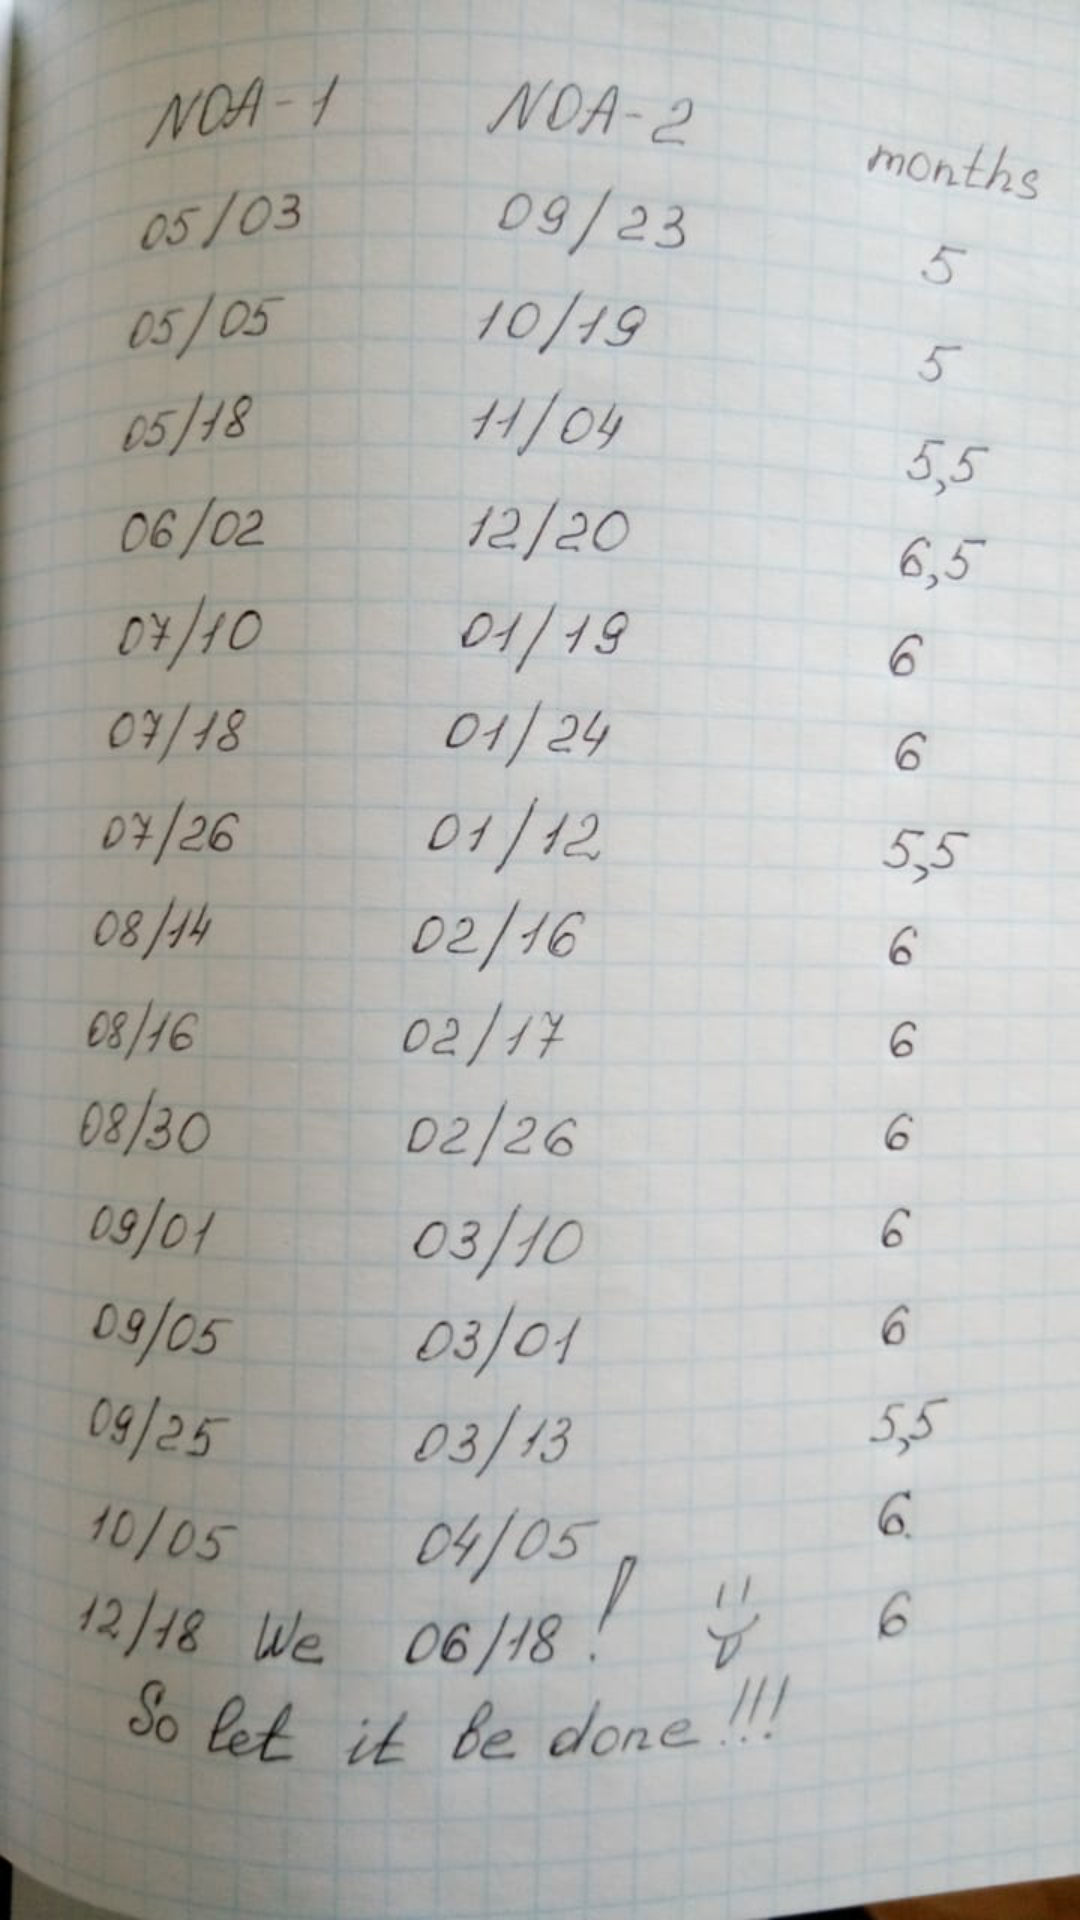 NOA-1 NOA-2 months
05/03 09/23 5
05/05 10/19 5
05/18 11/04 5,5
06/02 12/20 6,5
07/10 01/19 6
07/18 01/24 6
07/26 01/12 5,5
08/14 02/16 6
08/16 02/17 6
08/30 02/26 6
09/01 03/10 6
09/05 03/01 6
09/25 03/13 5,5
10/05 04/05 6.
12/18 We 06/18! 6
So let it be done!!!